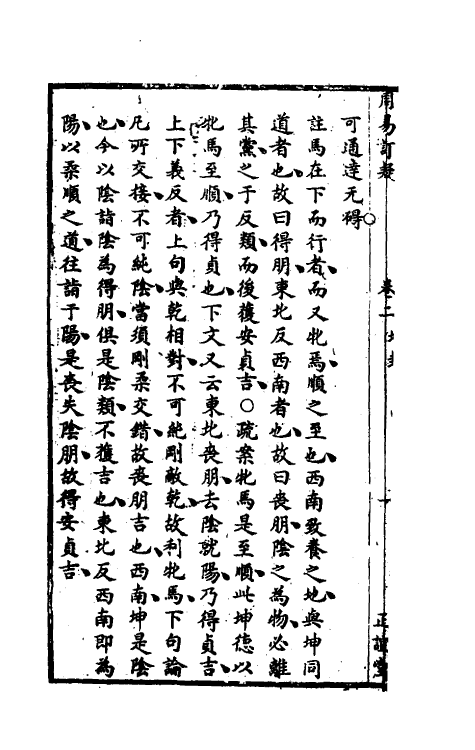 周易訂疑 卷二 坤卦 一 正誼堂
可通達无碍○
註馬在下而行者而又牝焉順之至也西南致養之地與坤同
道者也故曰得朋東北反西南者也故曰喪朋陰之為物必離
其黨之于反類而後獲安貞吉○疏案牝馬是至順此坤德以
牝馬至順乃得貞也下文又云東北喪朋去陰就陽乃得貞吉
上下義反者上句與乾相對不可純剛敵乾故利牝馬下句論
凡所交接不可純陰當須剛柔交錯故喪朋吉也西南坤是陰
也今以陰詣陰為得朋俱是陰類不獲吉也東北反西南即為
陽以柔順之道往詣于陽是喪失陰朋故得安貞吉